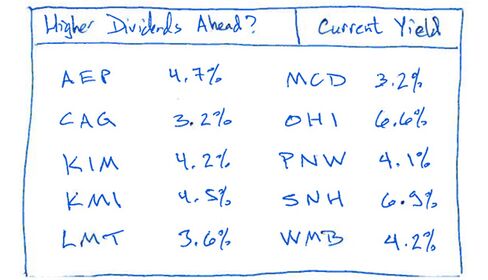 Higher Dividends Ahead? Current Yield
AEP 4.7% MCD 3.2%
CAG 3.2% OHI 6.6%
KIM 4.2% PNW 4.1%
KMI 4.5% SNH 6.9%
LMT 3.6% WMB 4.2%